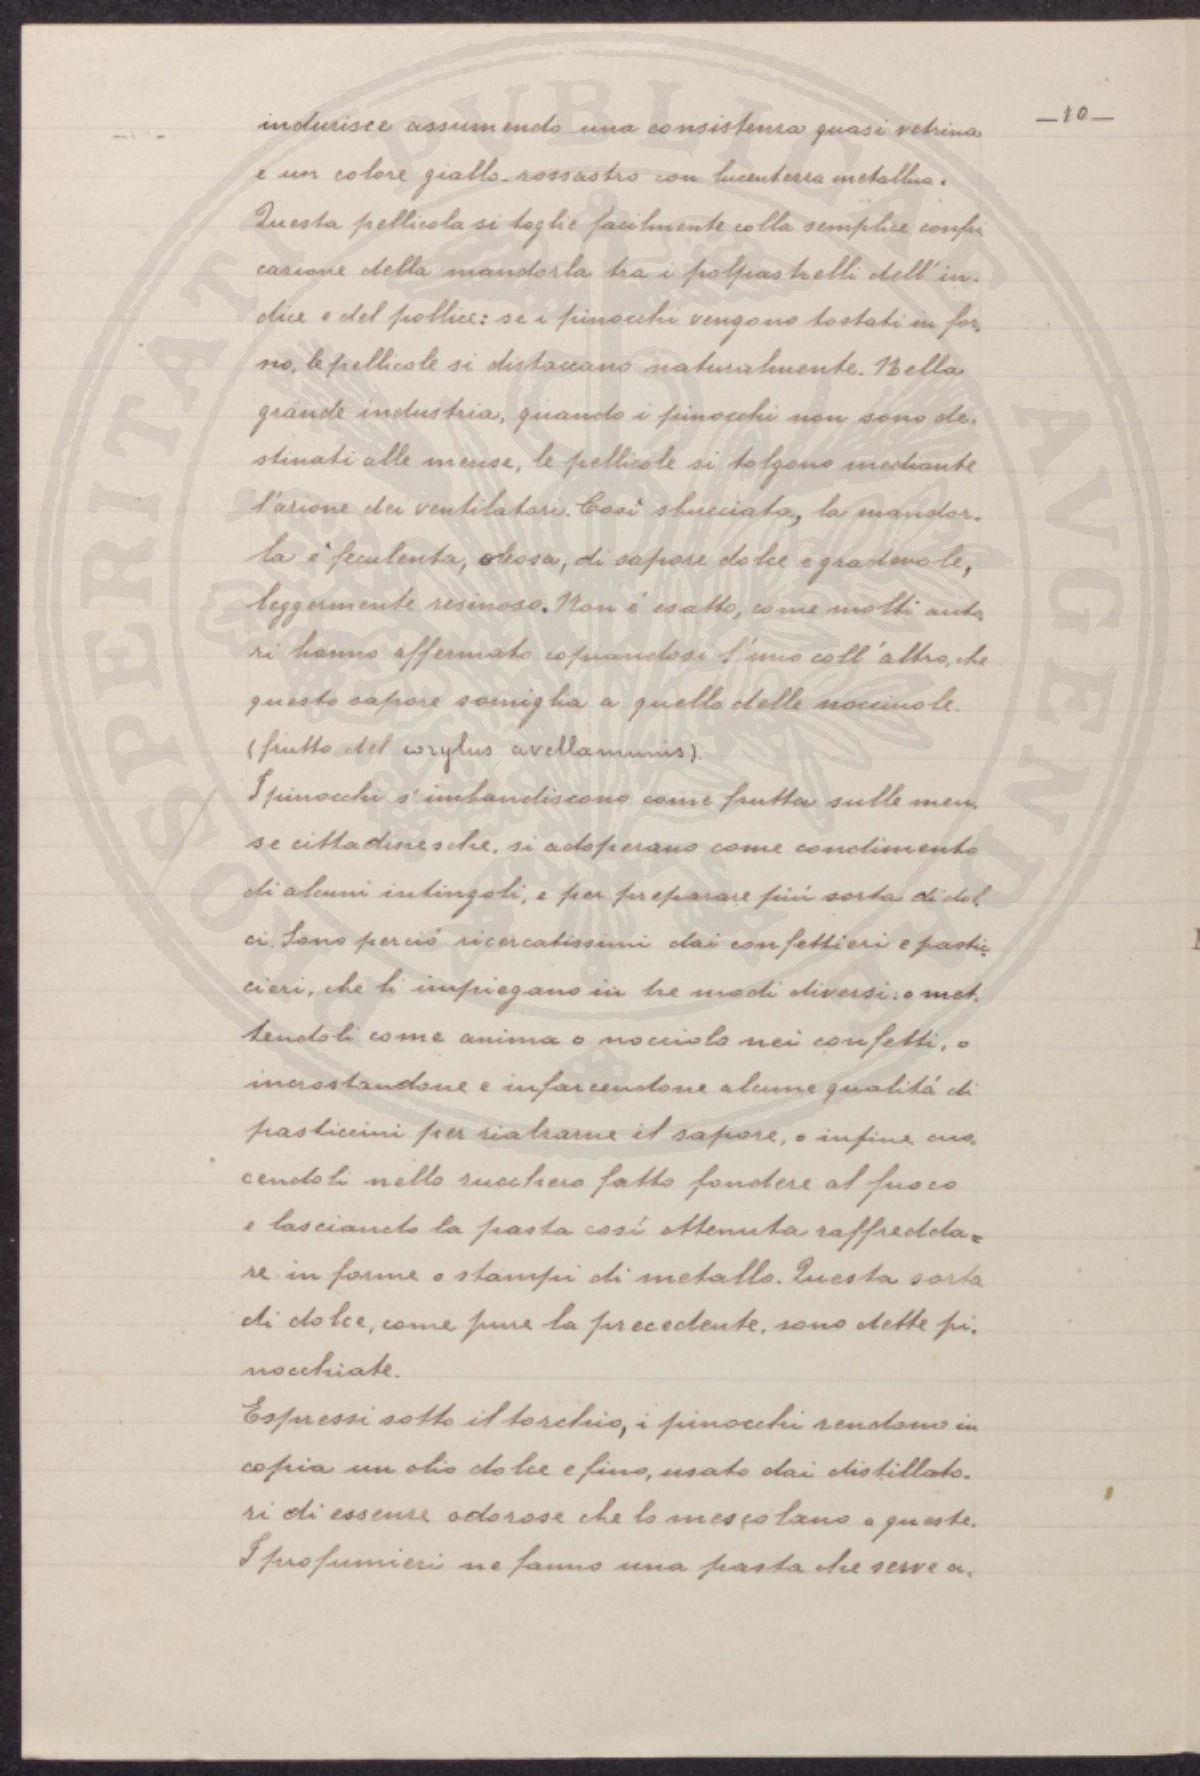 —10—
indurisce assumendo una consistenza quasi vetrina
e un colore giallo-rossastro con lucentezza metallica.
Questa pellicola si toglie facilmente colla semplice confri
cazione della mandorla tra i polpastrelli dell'in-
dice e del pollice: se i pinocchi vengono tostati in for-
no, le pellicole si distaccano naturalmente. Nella
grande industria, quando i pinocchi non sono de-
stinati alle mense, le pellicole si tolgono mediante
l'azione dei ventilatori. Così sbucciata, la mandor-
la è feculenta, oleosa, di sapore dolce e gradevole,
leggermente resinoso. Non é esatto, come molti auto-
ri hanno affermato copiandosi l'uno coll'altro, che
questo sapore somiglia a quello delle nocciuole.
(frutto del corylus avellamunis).
I pinocchi s'imbandiscono come frutta sulle men-
se cittadinesche, si adoperano come condimento
di alcuni intingoli, e per preparare più sorta di dol-
ci. Sono perció ricercatissimi dai confettieri e pastic-
cieri, che li impiegano in tre modi diversi: o met-
tendoli come anima o nocciolo nei confetti, o
incrostandone e infarcendone alcune qualitá di
pasticcini per rialzarne il sapore, o infine cuo-
cendoli nello zucchero fatto fondere al fuoco
e lasciando la pasta cosí ottenuta raffredda=
re in forme o stampi di metallo. Questa sorta
di dolce, come pure la precedente, sono dette pi-
nocchiate.
Espressi sotto il torchio, i pinocchi rendono in
copia un olio dolce e fino, usato dai distillato-
ri di essenze odorose che lo mescolano a queste.
I profumieri ne fanno una pasta che serve a-
PROSPERITATI PUBLICAE AVGENDAE